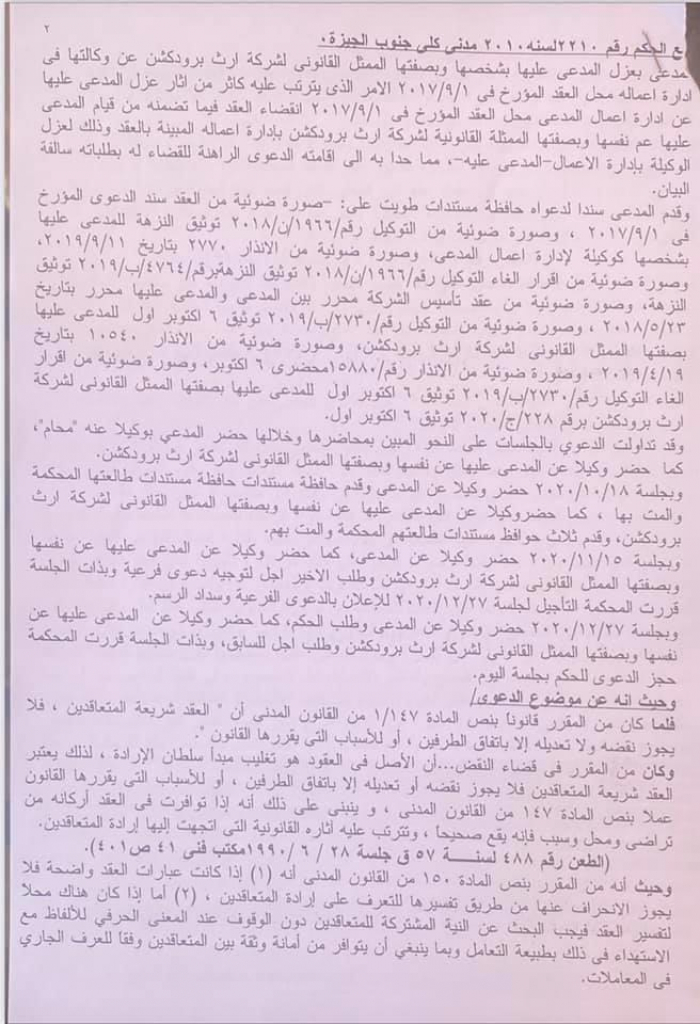 ٢
ع الحكم رقم ٢٢١٠ لسنة ٢٠١٠ مدنى كلى جنوب الجيزة.
مدعى بعزل المدعى عليها بشخصها وبصفتها الممثل القانونى لشركة ارث برودكشن عن وكالتها فى
ادارة اعماله محل العقد المؤرخ فى ٢٠١٧/٩/١ الامر الذى يترتب عليه كاثر من اثار عزل المدعى عليها
عن ادارة اعمال المدعى محل العقد المؤرخ فى ٢٠١٧/٩/١ انقضاء العقد فيما تضمنه من قيام المدعى
عليها عم نفسها وبصفتها الممثلة القانونية لشركة ارث برودكشن بإدارة اعماله المبينة بالعقد وذلك لعزل
الوكيلة بإدارة الاعمال-المدعى عليه-، مما حدا به الى اقامته الدعوى الراهنة للقضاء له بطلباته سالفة
البيان.
وقدم المدعى سندا لدعواه حافظة مستندات طويت على: -صورة ضوئية من العقد سند الدعوى المؤرخ
فى ٢٠١٧/٩/١ ، وصورة ضوئية من التوكيل رقم/١٩٦٦/ن/٢٠١٨ توثيق النزهة للمدعى عليها
بشخصها كوكيلة لإدارة اعمال المدعى، وصورة ضوئية من الانذار ٢٧٧٠ بتاريخ ٢٠١٩/٩/١١،
وصورة ضوئية من اقرار الغاء التوكيل رقم/١٩٦٦/ن/٢٠١٨ توثيق النزهةبرقم/٤٧٦٤/ب/٢٠١٩ توثيق
النزهة، وصورة ضوئية من عقد تأسيس الشركة محرر بين المدعى والمدعى عليها محرر بتاريخ
٢٠١٨/٥/٢٣ ، وصورة ضوئية من التوكيل رقم/٢٧٣٠/ب/٢٠١٩ توثيق ٦ اكتوبر اول للمدعى عليها
بصفتها الممثل القانونى لشركة ارث برودكشن، وصورة ضوئية من الانذار ١٠٥٤٠ بتاريخ
٢٠١٩/٤/١٩ ، وصورة ضوئية من الانذار رقم/١٥٨٨٠محضرى ٦ اكتوبر، وصورة ضوئية من اقرار
الغاء التوكيل رقم/٢٧٣٠/ب/٢٠١٩ توثيق ٦ اكتوبر اول للمدعى عليها بصفتها الممثل القانونى لشركة
ارث برودكشن برقم ٢٢٨/ج/٢٠٢٠ توثيق ٦ اكتوبر اول.
وقد تداولت الدعوي بالجلسات على النحو المبين بمحاضرها وخلالها حضر المدعي بوكيلا عنه "محام"،
كما حضر وكيلا عن المدعى عليها عن نفسها وبصفتها الممثل القانونى لشركة ارث برودكشن.
وبجلسة ٢٠٢٠/١٠/١٨ حضر وكيلا عن المدعى وقدم حافظة مستندات حافظة مستندات طالعتها المحكمة
والمت بها ، كما حضروكيلا عن المدعى عليها عن نفسها وبصفتها الممثل القانونى لشركة ارث
برودكشن، وقدم ثلاث حوافظ مستندات طالعتهم المحكمة والمت بهم.
وبجلسة ٢٠٢٠/١١/١٥ حضر وكيلا عن المدعى، كما حضر وكيلا عن المدعى عليها عن نفسها
وبصفتها الممثل القانونى لشركة ارث برودكشن وطلب الاخير اجل لتوجيه دعوى فرعية وبذات الجلسة
قررت المحكمة التأجيل لجلسة ٢٠٢٠/١٢/٢٧ للإعلان بالدعوى الفرعية وسداد الرسم.
وبجلسة ٢٠٢٠/١٢/٢٧ حضر وكيلا عن المدعى وطلب الحكم، كما حضر وكيلا عن المدعى عليها عن
نفسها وبصفتها الممثل القانونى لشركة ارث برودكشن وطلب اجل للسابق، وبذات الجلسة قررت المحكمة
حجز الدعوى للحكم بجلسة اليوم.
وحيث انه عن موضوع الدعوى/
فلما كان من المقرر قانوناً بنص المادة ١/١٤٧ من القانون المدنى أن " العقد شريعة المتعاقدين ، فلا
يجوز نقضه ولا تعديله إلا باتفاق الطرفين ، أو للأسباب التى يقررها القانون ".
وكان من المقرر فى قضاء النقض...أن الأصل فى العقود هو تغليب مبدأ سلطان الإرادة ، لذلك يعتبر
العقد شريعة المتعاقدين فلا يجوز نقضه أو تعديله إلا باتفاق الطرفين ، أو للأسباب التى يقررها القانون
عملا بنص المادة ١٤٧ من القانون المدنى ، و ينبنى على ذلك أنه إذا توافرت فى العقد أركانه من
تراضى ومحل وسبب فإنه يقع صحيحاً ، وتترتب عليه أثاره القانونية التى اتجهت إليها إرادة المتعاقدين.
(الطعن رقم ٤٨٨ لسنــــة ٥٧ ق جلسة ٢٨ / ٦ / ١٩٩٠مكتب فنى ٤١ ص٤٠١).
وحيث أنه من المقرر بنص المادة ١٥٠ من القانون المدنى أنه (١) إذا كانت عبارات العقد واضحة فلا
يجوز الانحراف عنها من طريق تفسيرها للتعرف على إرادة المتعاقدين ، (٢) أما إذا كان هناك محلا
لتفسير العقد فيجب البحث عن النية المشتركة للمتعاقدين دون الوقوف عند المعنى الحرفي للألفاظ مع
الاستهداء فى ذلك بطبيعة التعامل وبما ينبغي أن يتوافر من أمانة وثقة بين المتعاقدين وفقاً للعرف الجاري
فى المعاملات.